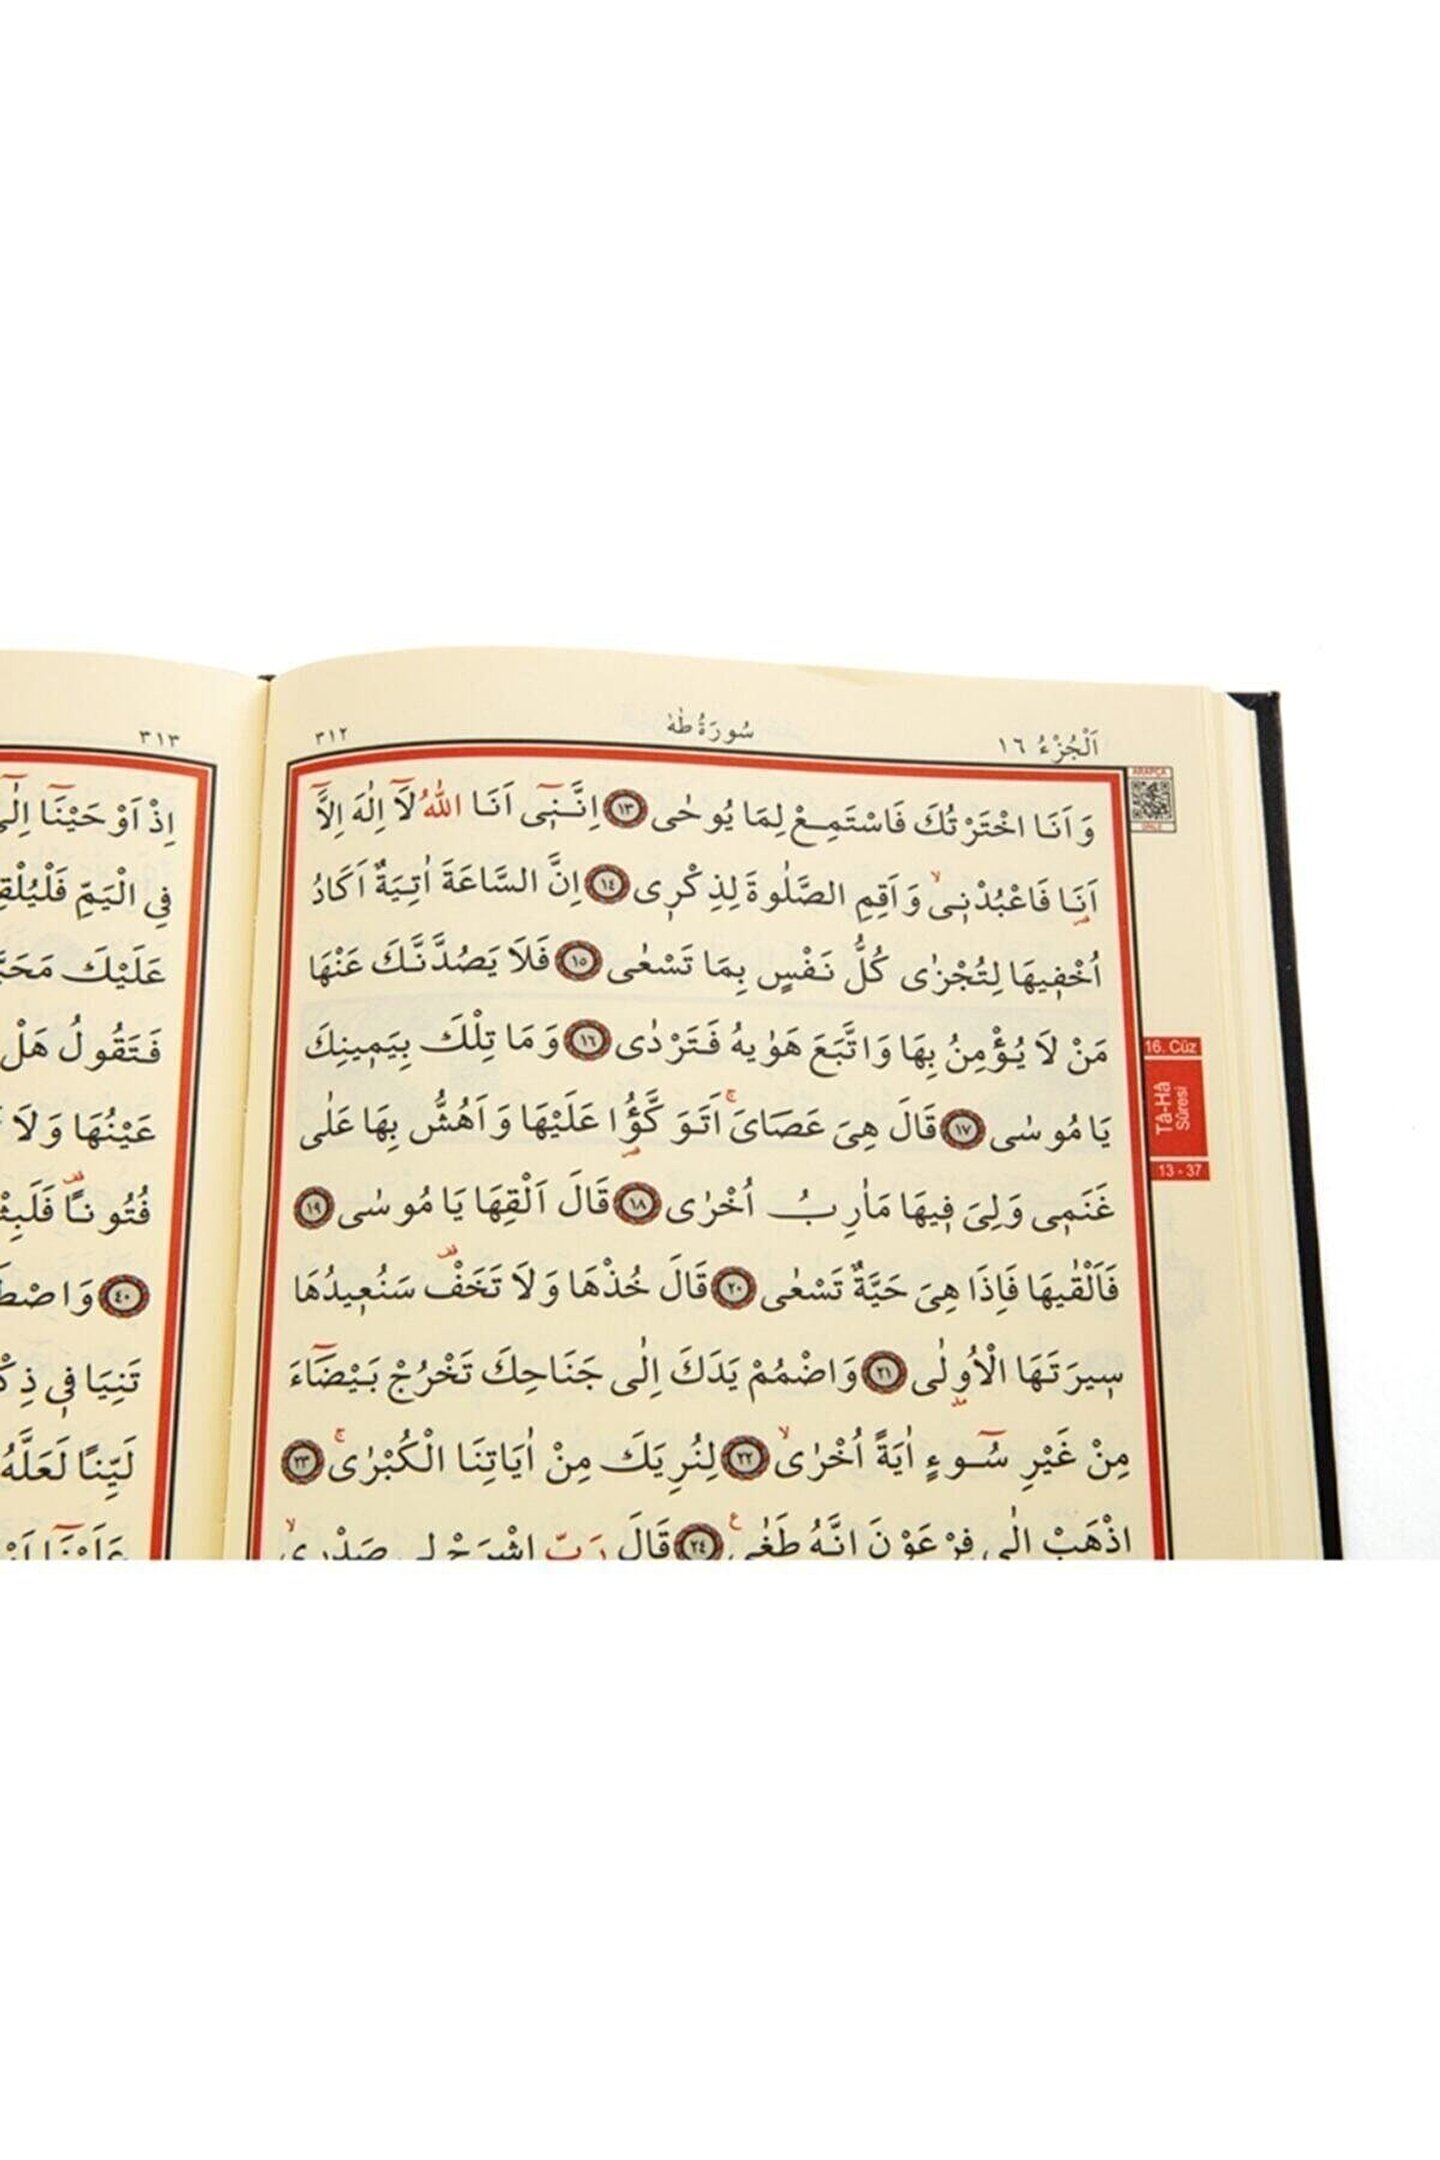 اَلْجُزْءُ ١٦
سُورَةُ طٰهٰ
٣١٢
وَاَنَا اخْتَرْتُكَ فَاسْتَمِعْ لِمَا يُوحٰى ١٣ اِنَّنٖٓى اَنَا اللّٰهُ لَٓا اِلٰهَ اِلَّٓا
اَنَا فَاعْبُدْنٖىۙ وَاَقِمِ الصَّلٰوةَ لِذِكْرٖى ١٤ اِنَّ السَّاعَةَ اٰتِيَةٌ اَكَادُ
اُخْفٖيهَا لِتُجْزٰى كُلُّ نَفْسٍ بِمَا تَسْعٰى ١٥ فَلَا يَصُدَّنَّكَ عَنْهَا
مَنْ لَا يُؤْمِنُ بِهَا وَاتَّبَعَ هَوٰيهُ فَتَرْدٰى ١٦ وَمَا تِلْكَ بِيَمٖينِكَ
يَا مُوسٰى ١٧ قَالَ هِىَ عَصَاىَۚ اَتَوَكَّؤُ۬ا عَلَيْهَا وَاَهُشُّ بِهَا عَلٰى
غَنَمٖى وَلِىَ فٖيهَا مَاٰرِبُ اُخْرٰى ١٨ قَالَ اَلْقِهَا يَا مُوسٰى ١٩
فَاَلْقٰيهَا فَاِذَا هِىَ حَيَّةٌ تَسْعٰى ٢٠ قَالَ خُذْهَا وَلَا تَخَفْ۠ سَنُعٖيدُهَا
سٖيرَتَهَا الْاُو۫لٰى ٢١ وَاضْمُمْ يَدَكَ اِلٰى جَنَاحِكَ تَخْرُجْ بَيْضَٓاءَ
مِنْ غَيْرِ سُٓوءٍ اٰيَةً اُخْرٰىۙ ٢٢ لِنُرِيَكَ مِنْ اٰيَاتِنَا الْكُبْرٰىۚ ٢٣
اِذْهَبْ اِلٰى فِرْعَوْنَ اِنَّهُ طَغٰىࣖ ٢٤ قَالَ رَبِّ اشْرَحْ لٖى صَدْرٖىۙ
ARAPÇA
16. Cüz
Tâ-Hâ
Sûresi
13 - 37
٣١٣
اِذْ اَوْحَيْنَٓا اِلٰٓى
فِى الْيَمِّ فَلْيُلْقِ
عَلَيْكَ مَحَبَّ
فَتَقُولُ هَلْ
عَيْنُهَا وَلَا
فُتُونًا۠ فَلَبِثْ
٤٠ وَاصْطَ
تَنِيَا فٖى ذِكْ
لَيِّنًا لَعَلَّهُ
عَلَيْنَٓا اَوْ